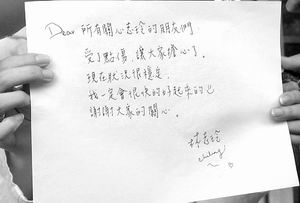 Dear 所有關心志玲的朋友們:
受了點傷,讓大家擔心了。
現在狀況很穩定,
我一定會很快的好起來的
謝謝大家的關心。
林志玲